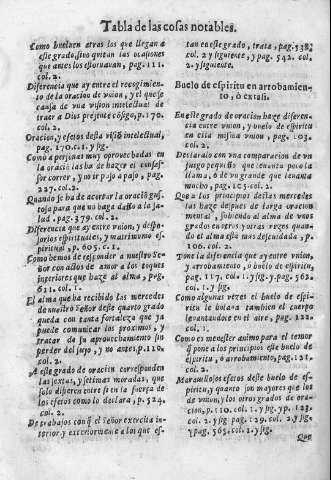 Tabla de las cosas notables.
Como buelven atras los que llegan a
este grado, sino quitan las ocasiones
que antes los estoruauan, pag. 111.
col. 2.
Diferencia que ay entre el recogimiento
de la oracion de vnion, y el que se
causa de vna vision intelectual de
traer a Dios presente cósigo, p. 170.
col. 2.
Oracion, y efetos desta visió intelectual,
pag. 170. c. 1. y sig.
Como a personas muy aprovechadas en
la oració las ha de hazer el confes-
sor correr, y no ir passo a passo, pag.
227. col. 2.
Quando se ha de acortar la oració gus-
tosa para que no haga daño a la sa-
lud. pag. 379. col. 2.
Diferencia que ay entre vnion, y despo-
sorios espirituales, y matrimonio es-
piritual, p. 605. c. 1.
Como hemos de responder a nuestro Se-
ñor con actos de amor a los toques
interiores que haze al alma, pag.
611. col. 1.
El alma que ha recibido las mercedes
de nuestro Señor deste quarto grado
queda con tanta fortaleza que ya
puede comunicar los proximos, y
tratar de su aprovechamiento sin
perder del suyo, y no antes. p. 110.
col. 2.
A este grado de oracion corresponden
las sextas, y setimas moradas, que
solo diferen entre si en la fuerça de
los efetos como lo declara, p. 524.
col. 2.
De trabajos con q̃ el Señor exercita in-
terior, y exteriormente a los que es-
tan en este grado, trata, pag. 538.
col. 2 y siguiente, y pag. 542. col.
2. y siguiente.
Buelo de espiritu en arrobamien-
to, ò extasi.
En este grado de oracion haze diferen-
cia entre vnion, y buelo de espiritu
en esta misma vnion, pag. 103.
col. 2.
Declaralo con vna comparacion de vn
fuego pequeño que levanta poca
llama, ò de vn grande que levanta
mucho, pag. 105. col. 2.
Que a los principios destas mercedes
las haze despues de larga oracion
mental, subiendo al alma de vnos
grados en otros y otras vezes quan-
do el alma está mas descuidada, p.
106. col. 2.
Pone la diferencia que ay entre vnion,
y arrobamiento, ò buelo de espiritu,
pag. 117. col. 1. y sig. y pag. 562.
col. 1. y sig.
Como algunas vezes el buelo de espi-
ritu le bolava tambien el cuerpo
levantandole en el aire, pag. 122.
col. 1.
Como es menester animo para el temor
q̃ pone a los principios este buelo de
espiritu, ò arrobamiento, pag. 121.
col. 2.
Maravillosos efetos deste buelo de es-
piritu, y quanto son mayores que los
de vnion, y los otros grados de ora-
cion, p. 110. col. 1. y sig. y p. 123.
col. 2. y sig. pag. 129. col. 2. y sig.
y pag. 565. col. 2. y sig.
Que